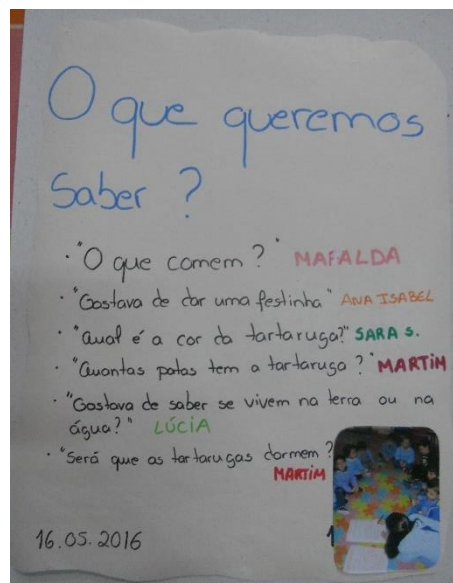 O que queremos
saber ?
· "O que comem ?" MAFALDA
· "Gostava de dar uma festinha" ANA ISABEL
· "Qual é a cor da tartaruga?" SARA S.
· "Quantas patas tem a tartaruga ?" MARTIM
· "Gostava de saber se vivem na terra ou na
água?" LÚCIA
· "Será que as tartarugas dormem ?
MARTIM
16.05.2016